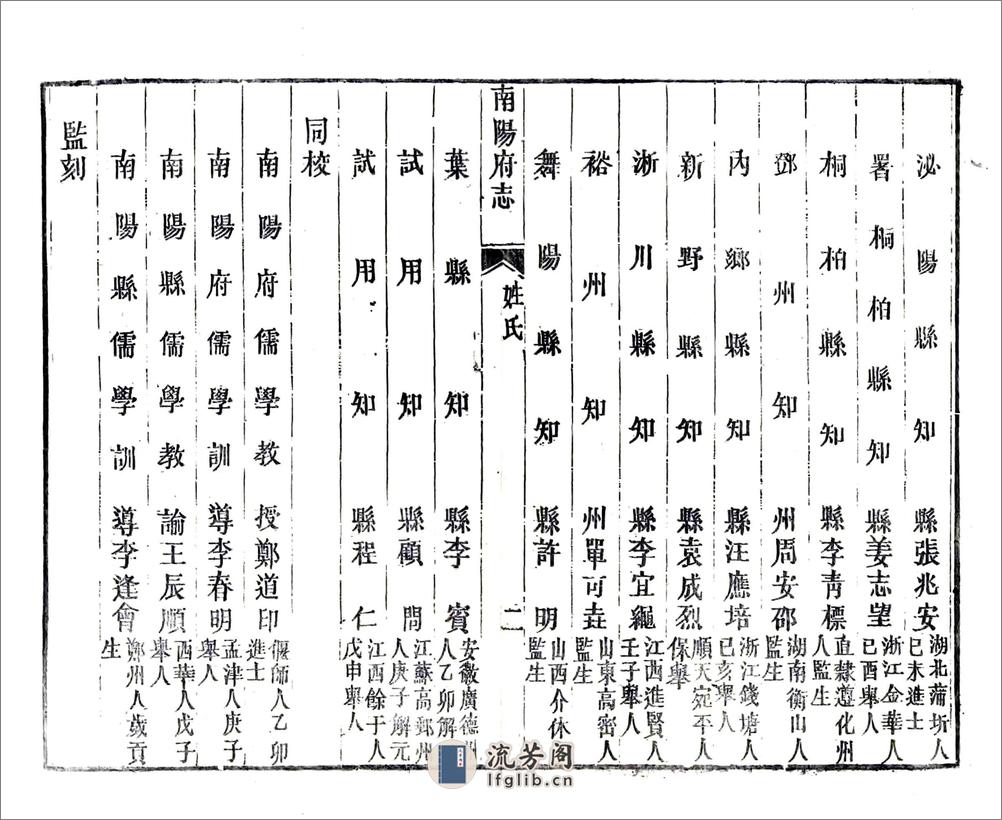 泌陽縣知縣張兆安湖北蒲圻人己未進士
署桐柏縣知縣姜志望浙江金華人己酉舉人
桐柏縣知縣李青標直隸遵化州人監生
鄧州知州周安邵湖南衡山人監生
內鄉縣知縣汪應培浙江錢塘人己亥舉人
新野縣知縣袁成烈順天宛平人保舉
淅川縣知縣李宜繩江西進賢人壬子舉人
裕州知州單可垚山東高密人監生
舞陽縣知縣許明山西介休人監生
南陽府志
姓氏
二
葉縣知縣李賓安徽廣德州人乙卯解
試用知縣顧問江蘇高郵州人庚子解元
試用知縣程仁江西餘于人戊申舉人
同校
南陽府儒學教授鄭道印偃師人乙卯進士
南陽府儒學訓導李春明孟津人庚子舉人
南陽縣儒學教諭王辰順西華人戊子舉人
南陽縣儒學訓導李逢會鄭州人歲貢生
監刻
流芳阁
lfglib.cn